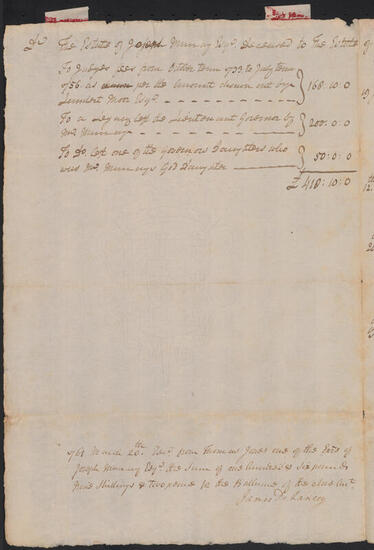 Dr The Estate of Joseph Murray Esqr. Deceased to The Estate of
To Judges fees from October term 1733 to July term
1756 as per the Amount drawn out by
Lambert Moor Esqr. 168:10:0
To a Legacy left the Lieutenant Governor by
Mr. Murray 200:0:0
To Do. left one of the Governors Daughters who
was Mr. Murrays God Daughter 50:0:0
£ 418:10:0
1761 March 20th. Recd. from Thomas Jones one of the Exrs of
Joseph Murray Esqr. the Sum of one hundred & six pounds
Nine Shillings & two pence In the Ballance of the above Acct.
James De Lancey